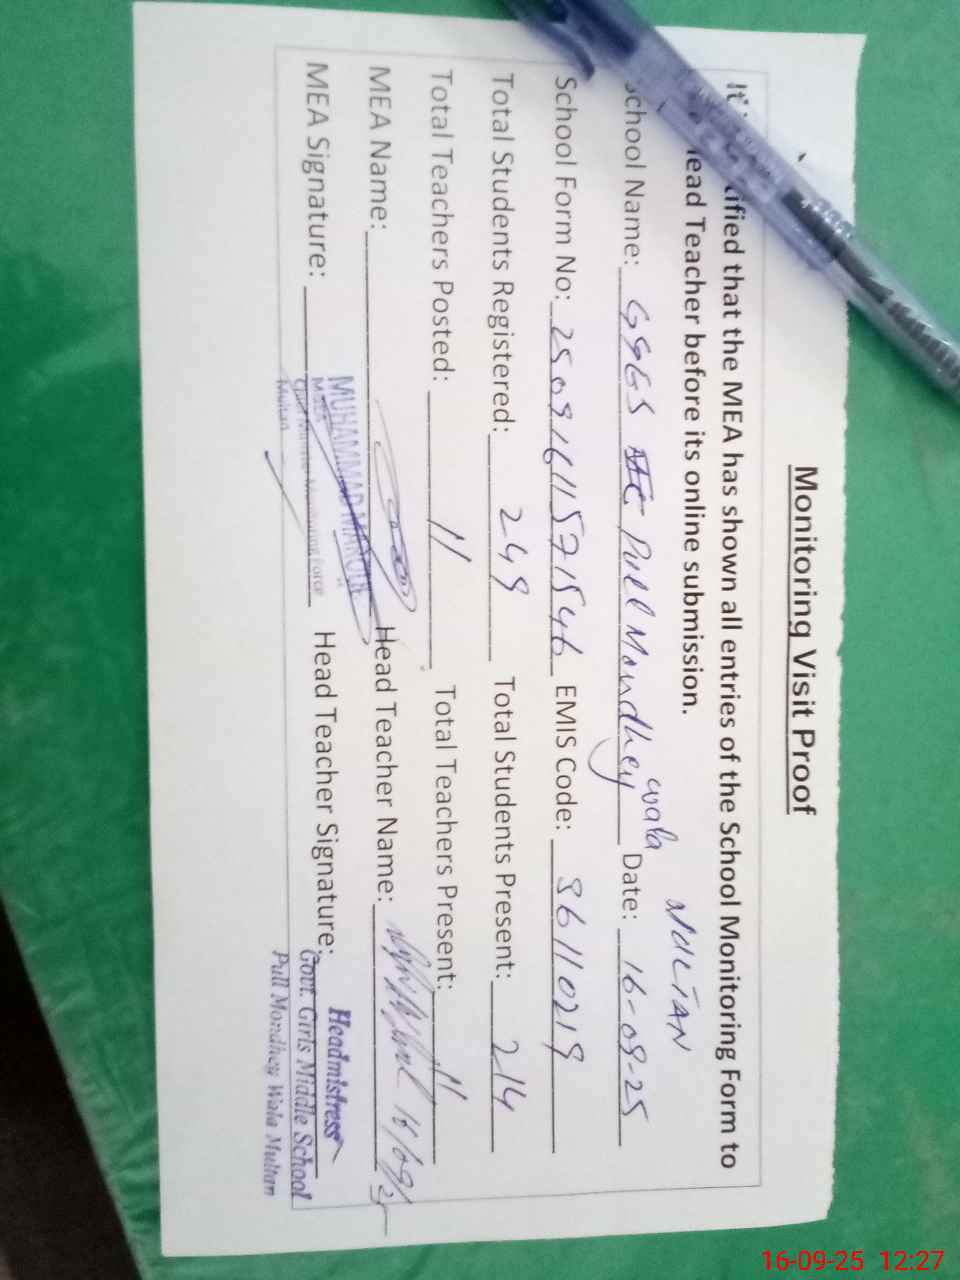 Monitoring Visit Proof
It's certified that the MEA has shown all entries of the School Monitoring Form to
Head Teacher before its online submission.
MULTAN
School Name: GGES Pull Mondhey wala Date: 16-09-25
School Form No: 25091611571546 EMIS Code: 36110219
Total Students Registered: 249 Total Students Present: 214
Total Teachers Posted: 11 Total Teachers Present: 11
MEA Name: Head Teacher Name: 16/09/25
MEA Signature: Head Teacher Signature:
MUHAMMAD
Monitoring Force
Multan
Headmistress
Govt. Girls Middle School
Pull Mondhey Wala Multan
16-09-25 12:27